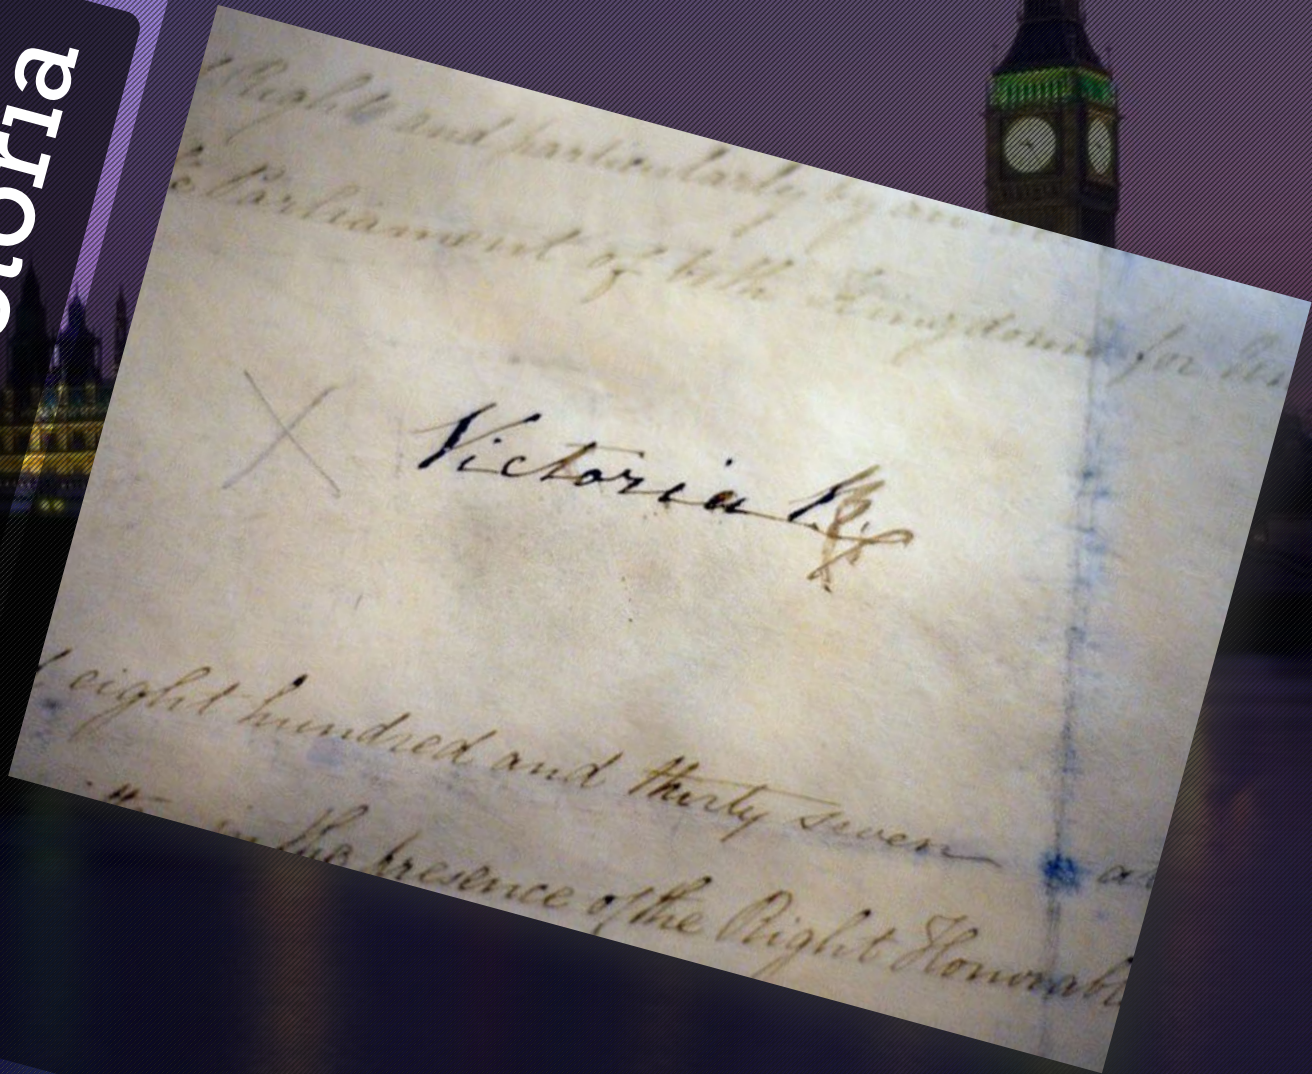 toria
Rights and particularly by an
Parliament of both Kingdoms for the
X Victoria R
eight hundred and thirty seven at
in the presence of the Right Honorable